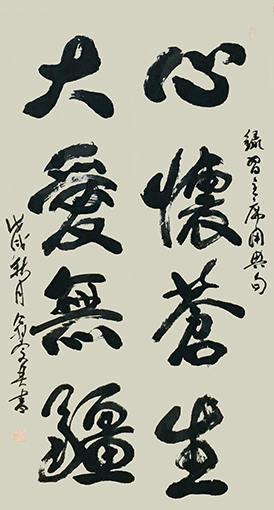 録習主席用典句
心懷蒼生
大愛無疆
戊戌秋月
書